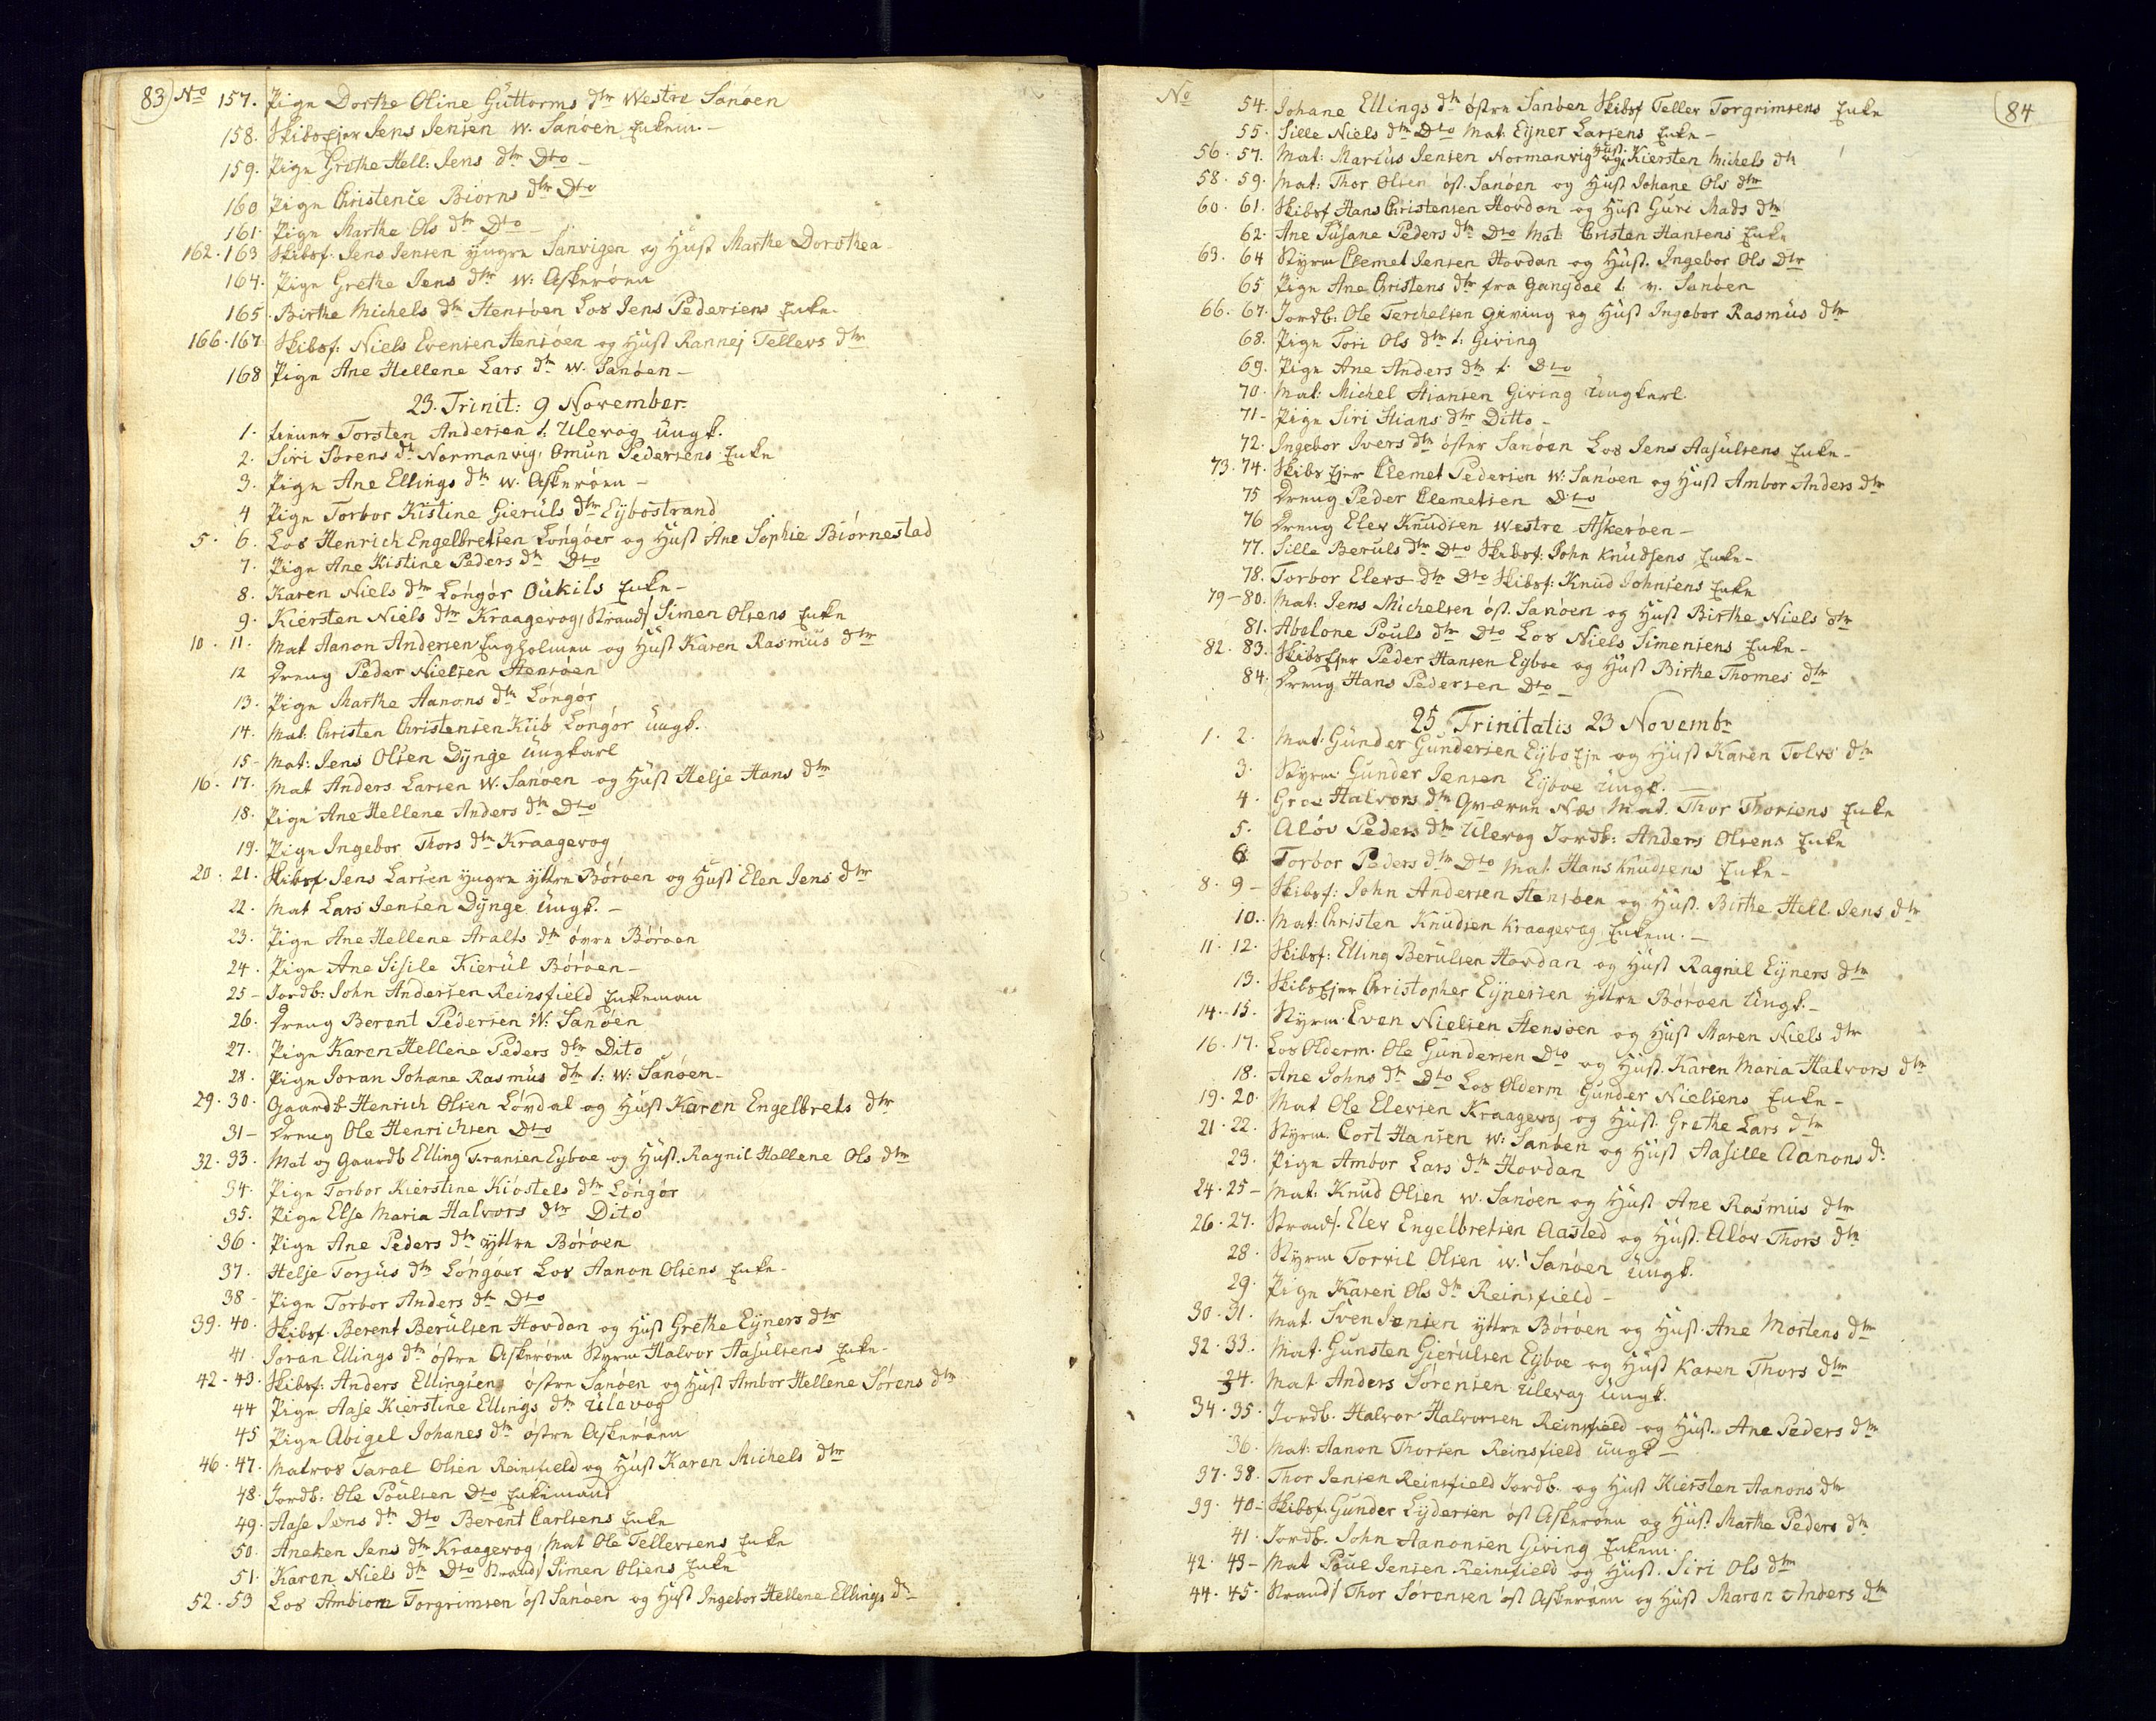 83) No 157. Pige Dorthe Oline Guttorms dtr Westre Sanøen
158. Skibsejer Jens Jensen W. Sanøen Enkem. -
159. Pige Grethe Hell: Jens dtr Dto -
160 Pige Christence Biørns dtr Dto
161. Pige Marthe Ols dtr Dto -
162. 163 Skibsf. Jens Jensen yngre Sanvigen og Hust Marthe Dorothea -
164. Pige Grethe Jens dtr W. Askerøen
165. Birthe Michels dtr Stensøen Los Jens Pedersens Enke.
166. 167. Skibsf: Niels Evensen Stensøen og Hust Rannej Tellevs dtr
168 Pige Ane Hellene Lars dtr W. Sanøen -
23. Trinit: 9 November.
1. Tiener Torsten Andersen t: Ulevog Ungk.
2. Siri Sørens dtr Normanvig, Omun Pedersens Enke
3. Pige Ane Ellings dtr W. Askerøen -
4 Pige Torbor Kistine Gieruls dtr Eybostrand
5. 6. Los Henrich Engelbretsen Longøer og Hust Ane Sophie Biørnestad
7. Pige Ane Kistine Peders dtr Dto
8. Karen Niels dtr Longør Oukils Enke -
9. Kiersten Niels dtr Kraagevog, Strands Simen Olsens Enke
10. 11. Mat Aanon Andersen Engholmen og Hust Karen Rasmus dtr
12 Dreng Peder Nielsen Stensøen
13. Pige Marthe Aanons dtr Longør
14. Mat: Christen Christensen Kiib Longør Ungk.
15 - Mat: Jens Olsen Dynge Ungkarl
16. 17. Mat Anders Larsen W. Sanøen og Hust Helje Hans dtr
18. Pige Ane Hellene Anders dtr Dto
19. Pige Ingebor Thors dtr Kraagevog
20. 21. Skibsf. Jens Larsen yngre yttre Børøen og Hust Elen Jens dtr
22. Mat Lars Jensen Dynge Ungk. -
23. Pige Ane Hellene Aralts dtr øvre Børøen
24. Pige Ane Sisile Kierul Børøen -
25 - Jordb: John Andersen Reinsfield Enkeman
26. Dreng Berent Pedersen W: Sanøen
27. Pige Karen Hellene Peders dtr Dito
28. Pige Joran Johane Rasmus dtr t: W: Sanøen -
29. 30. Gaardb Henrich Olsen Løvdal og Hust Karen Engelbrets dtr
31 - Dreng Ole Henrichsen Dto
32. 33. Mat og Gaardb Elling Transen Eyboe og Hust. Ragnil Hellene Ols dtr
34. Pige Torbor Kierstine Kiøstels dtr Longør
35. Pige Else Maria Halvors dtr Dito
36. Pige Ane Peders dtr yttre Børøen
37. Helje Torjus dtr Longøer Los Aanon Olsens Enke -
38 - Pige Torbor Anders dtr Dto
39. 40. Skibsf. Berent Berulsen Hovdan og Hust Grethe Eyners dtr
41. Joran Ellings dtr østre Askerøen Styrm Halvor Aasulsens Enke -
42 - 43. Skibsf: Anders Ellingsen østre Sanøen og Hust Ambor Hellene Sørens dtr
44 Pige Aase Kierstine Ellings dtr Ulevog
45 Pige Abigel Johanes dtr østre Askerøen
46. 47. Matros Taral Olsen Reinsfield og Hust Karen Michels dtr
48. Jordb: Ole Poulsen Dto Enkemand
49. Aase Jens dtr Dto Berent Carlsens Enke
50. Aneken Jens dtr Kraagevog, Mat Ole Tellevsens Enke
51. Karen Niels dtr Dto Strands Simen Olsens Enke
52. 53 Los Ambiorn Torgrimsen øst Sanøen og Hust Ingebor Hellene Ellings dtr
No 54. Johane Ellings dtr østre Sanøen Skibsf Teller Torgrimsens Enke (84
55. Sille Niels dtr Dto Mat. Eyner Larsens Enke -
56. 57. Mat: Marius Jensen Normanvig og Hust Kiersten Michels dtr
58. 59. Mat: Thor Olsen øst. Sanøen og Hust Johane Ols dtr
60. 61. Skibsf Hans Christensen Hovdan og Hust Guri Mads dtr
62. Ane Susane Peders dtr Dto Mat: Christen Hansens Enke
63. 64 Styrm Clemet Jensen Hovdan og Hust. Ingebor Ols Dtr
65 Pige Ane Christens dtr fra Gangdae t. v. Sanøen
66. 67. Jordb: Ole Terchelsen Giving og Hust Ingebor Rasmus dtr
68. Pige Tori Ols dtr t: Giving
69. Pige Ane Anders dtr t. Dto
70. Mat: Michel Stiansen Giving Ungkarl.
71 - Pige Siri Stians dtr Ditto -
72. Ingebor Ivers dtr øster Sanøen Los Jens Aasulsens Enke -
73. 74. Skibs Ejer Clemet Pedersen W. Sanøen og Hust Ambor Anders dtr
75 Dreng Peder Clemetsen Dto
76 Dreng Elev Knudsen Westre Askerøen -
77. Sille Beruls dtr Dto Skibsf: John Knudsens Enke -
78. Torbor Elevs dtr Dto Skibsf: Knud Johnsens Enke
79 - 80. Mat: Jens Michelsen øst. Sanøen og Hust Birthe Niels dtr
81. Abelone Pouls dtr Dto Los Niels Simensens Enke -
82. 83. Skibs Ejer Peder Hansen Eyboe og Hust Birthe Thomes dtr
84. Dreng Hans Pedersen Dto -
25 Trinitatis 23 Novembr
1. 2. Mat: Gunder Gundersen Eybo Eje og Hust Karen Tolvs dtr
3. Styrm. Gunder Jensen Eyboe Ungk. -
4. Groe Halvors dtr Qværne Næs Mat. Thor Thorsens Enke
5. Aløv Peders dtr Ulevog Jordb: Anders Olsens Enke
6 Torbor Peders dtr Dto Mat. Hans Knudsens Enke -
8. 9 - Skibsf: John Andersen Stensøen og Hust. Birthe Hell Jens dtr
10. Mat: Christen Knudsen Kraagevog Enkem. -
11. 12. Skibsf: Elling Berulsen Hovdan og Hust Ragnil Eyners dtr
13. Skibs Ejer Christopher Eynersen yttre Børøen Ungk. -
14. 15. Styrm. Even Nielsen Stensøen og Hust Maren Niels dtr
16. 17. Los Olderm. Ole Gundersen Dto og Hust. Karen Maria Halvors dtr
18. Ane Johns dtr Dto Los Olderm Gunder Nielsens Enke -
19. 20. Mat Ole Elevsen Kraagevog og Hust. Grethe Lars dtr
21. 22. Styrm. Cort Hansen W. Sanøen og Hust Aasille Aanons dr
23. Pige Ambor Lars dtr Hovdan
24. 25 - Mat: Knud Olsen W. Sanøen og Hust Ane Rasmus dtr
26. 27. Strands. Elev Engelbretsen Aasted og Hust. Aløv Thors dtr
28. Styrm Torvil Olsen W. Sanøen Ungk.
29. Pige Karen Ols dtr Reinsfield -
30. 31. Mat. Sven Jensen yttre Børøen og Hust. Ane Mortens dtr
32. 33. Mat. Gunsten Gierulsen Eyboe og Hust Karen Thors dtr
34. Mat. Anders Sørensen Ulevog Ungk.
34. 35. Jordb. Halvor Halvorsen Reinsfield og Hust. Ane Peders dtr
36. Mat: Aanon Thorsen Reinsfield Ungk -
37. 38. Thor Jensen Reinsfield Jordb. og Hust Kiersten Aanons dtr
39. 40 - Skibsf. Gunder Eydersen øst Askerøen og Hust Marthe Peders dtr
41. Jordb. John Aanonsen Giving Enkem.
42. 43 - Mat Poul Jensen Reinsfield og Hust. Siri Ols dtr
44. 45. Strands Thor Sørensen øst Askerøen og Hust Maren Anders dtr